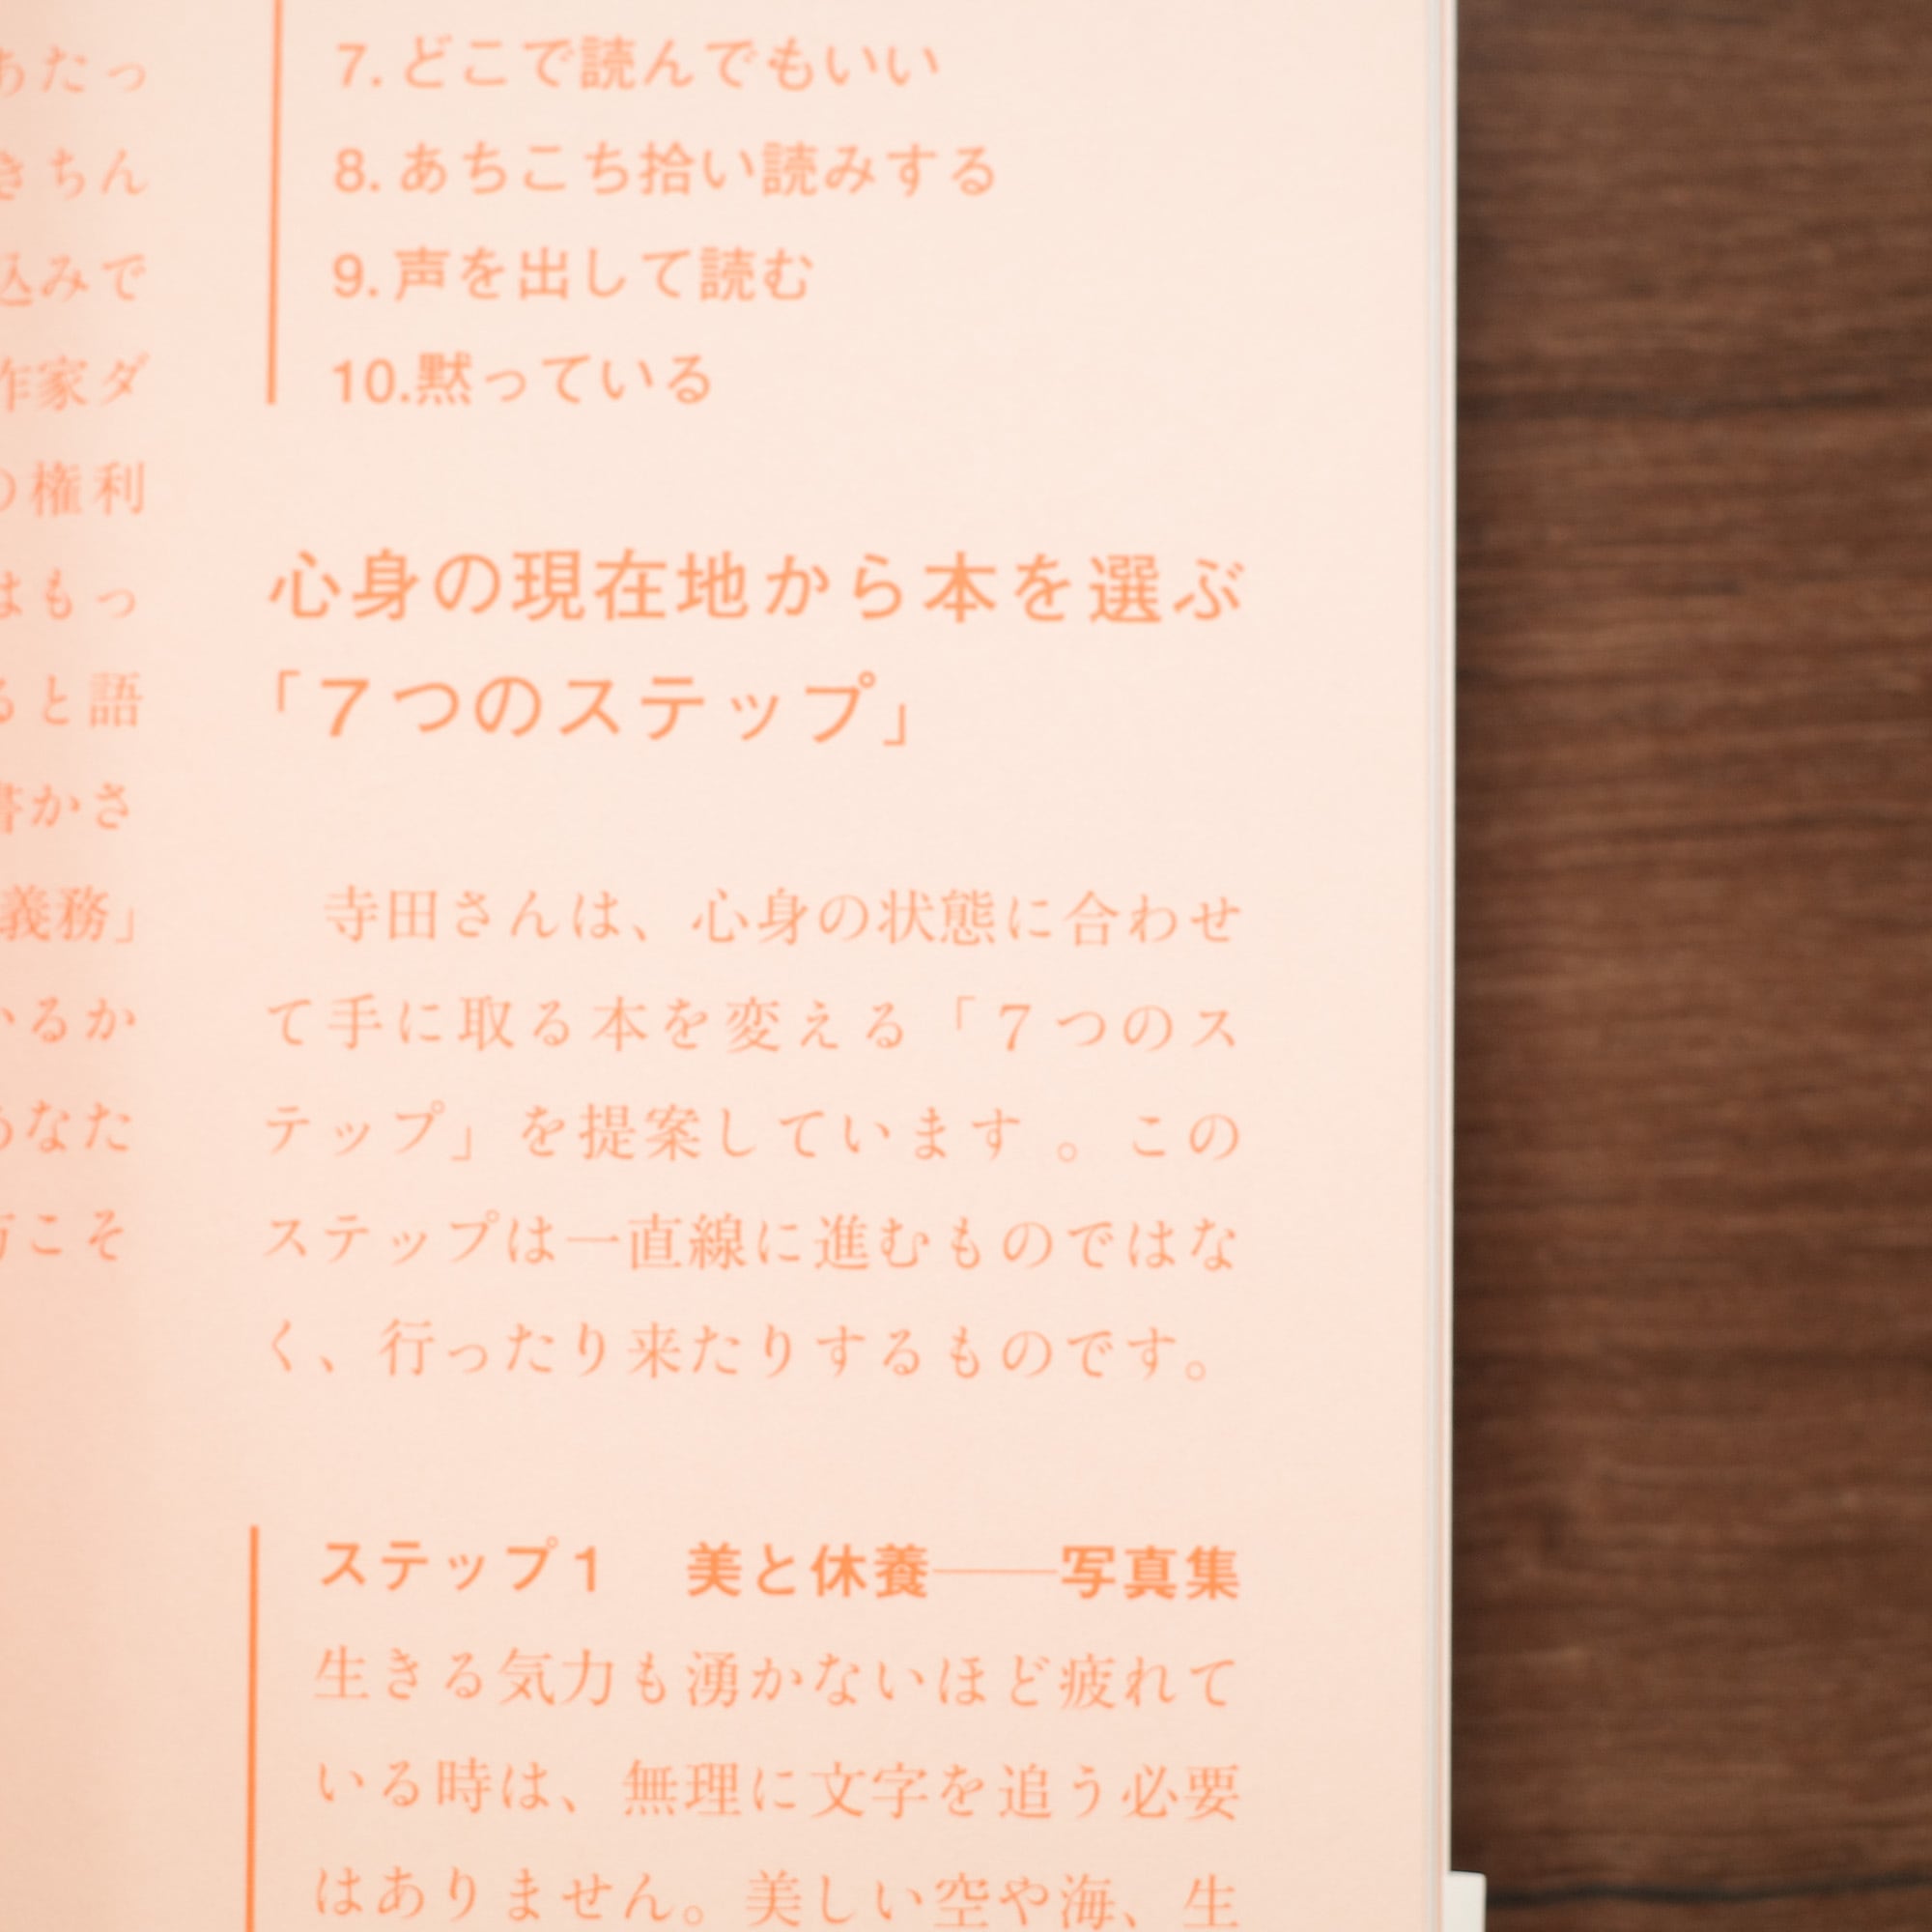 あたっ
きちん
込みで
作家ダ
の権利
はもっ
ると語
書かさ
義務」
いるか
なた
こそ
7. どこで読んでもいい
8. あちこち拾い読みする
9. 声を出して読む
10.黙っている
心身の現在地から本を選ぶ
「７つのステップ」
寺田さんは、心身の状態に合わせ
て手に取る本を変える「７つのス
テップ」を提案しています 。この
ステップは一直線に進むものではな
く、行ったり来たりするものです。
ステップ1　美と休養――写真集
生きる気力も湧かないほど疲れて
いる時は、無理に文字を追う必要
はありません。美しい空や海、生